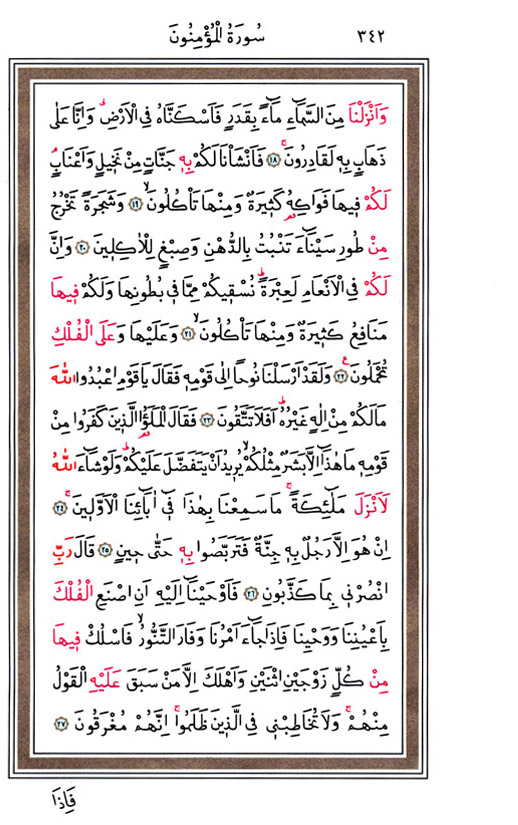 ٣٤٢ سُورَةُ الْمُؤْمِنُونَ
وَاَنْزَلْنَا مِنَ السَّمَٓاءِ مَٓاءً بِقَدَرٍ فَاَسْكَنَّاهُ فِي الْاَرْضِۗ وَاِنَّا عَلٰى
ذَهَابٍ بِهٖ لَقَادِرُونَۚ ﴿١٨﴾ فَاَنْشَاْنَا لَكُمْ بِهٖ جَنَّاتٍ مِنْ نَخٖيلٍ وَاَعْنَابٍۘ
لَكُمْ فٖيهَا فَوَاكِهُ كَثٖيرَةٌ وَمِنْهَا تَاْكُلُونَۙ ﴿١٩﴾ وَشَجَرَةً تَخْرُجُ
مِنْ طُورِ سَيْنَٓاءَ تَنْبُتُ بِالدُّهْنِ وَصِبْغٍ لِلْاٰكِلٖينَ ﴿٢٠﴾ وَاِنَّ
لَكُمْ فِي الْاَنْعَامِ لَعِبْرَةًۜ نُسْقٖيكُمْ مِمَّا فٖي بُطُونِهَا وَلَكُمْ فٖيهَا
مَنَافِعُ كَثٖيرَةٌ وَمِنْهَا تَاْكُلُونَۙ ﴿٢١﴾ وَعَلَيْهَا وَعَلَى الْفُلْكِ
تُحْمَلُونَۚ ﴿٢٢﴾ وَلَقَدْ اَرْسَلْنَا نُوحًا اِلٰى قَوْمِهٖ فَقَالَ يَا قَوْمِ اعْبُدُوا اللّٰهَ
مَا لَكُمْ مِنْ اِلٰهٍ غَيْرُهُۜ اَفَلَا تَتَّقُونَ ﴿٢٣﴾ فَقَالَ الْمَلَؤُا الَّذٖينَ كَفَرُوا مِنْ
قَوْمِهٖ مَا هٰذَٓا اِلَّا بَشَرٌ مِثْلُكُمْۙ يُرٖيدُ اَنْ يَتَفَضَّلَ عَلَيْكُمْۜ وَلَوْ شَٓاءَ اللّٰهُ
لَاَنْزَلَ مَلٰٓئِكَةًۚ مَا سَمِعْنَا بِهٰذَا فٖٓي اٰبَٓائِنَا الْاَوَّلٖينَۚ ﴿٢٤﴾
اِنْ هُوَ اِلَّا رَجُلٌ بِهٖ جِنَّةٌ فَتَرَبَّصُوا بِهٖ حَتّٰى حٖينٍ ﴿٢٥﴾ قَالَ رَبِّ
انْصُرْنٖي بِمَا كَذَّبُونِ ﴿٢٦﴾ فَاَوْحَيْنَٓا اِلَيْهِ اَنِ اصْنَعِ الْفُلْكَ
بِاَعْيُنِنَا وَوَحْيِنَا فَاِذَا جَٓاءَ اَمْرُنَا وَفَارَ التَّنُّورُۙ فَاسْلُكْ فٖيهَا
مِنْ كُلٍّ زَوْجَيْنِ اثْنَيْنِ وَاَهْلَكَ اِلَّا مَنْ سَبَقَ عَلَيْهِ الْقَوْلُ
مِنْهُمْۚ وَلَا تُخَاطِبْنٖي فِي الَّذٖينَ ظَلَمُواۚ اِنَّهُمْ مُغْرَقُونَ ﴿٢٧﴾
فَاِذَا